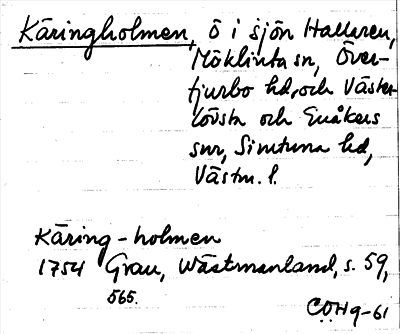 Käringholmen, ö i sjön Hallaren,
Möklinta sn, Över-
tjurbo hd, och Väster-
lövsta och Enåkers
snr, Simtuna hd,
Västm. l.
Käring-holmen
1754 Grau, Wästmanland, s. 59,
565.
C.O.H g-61